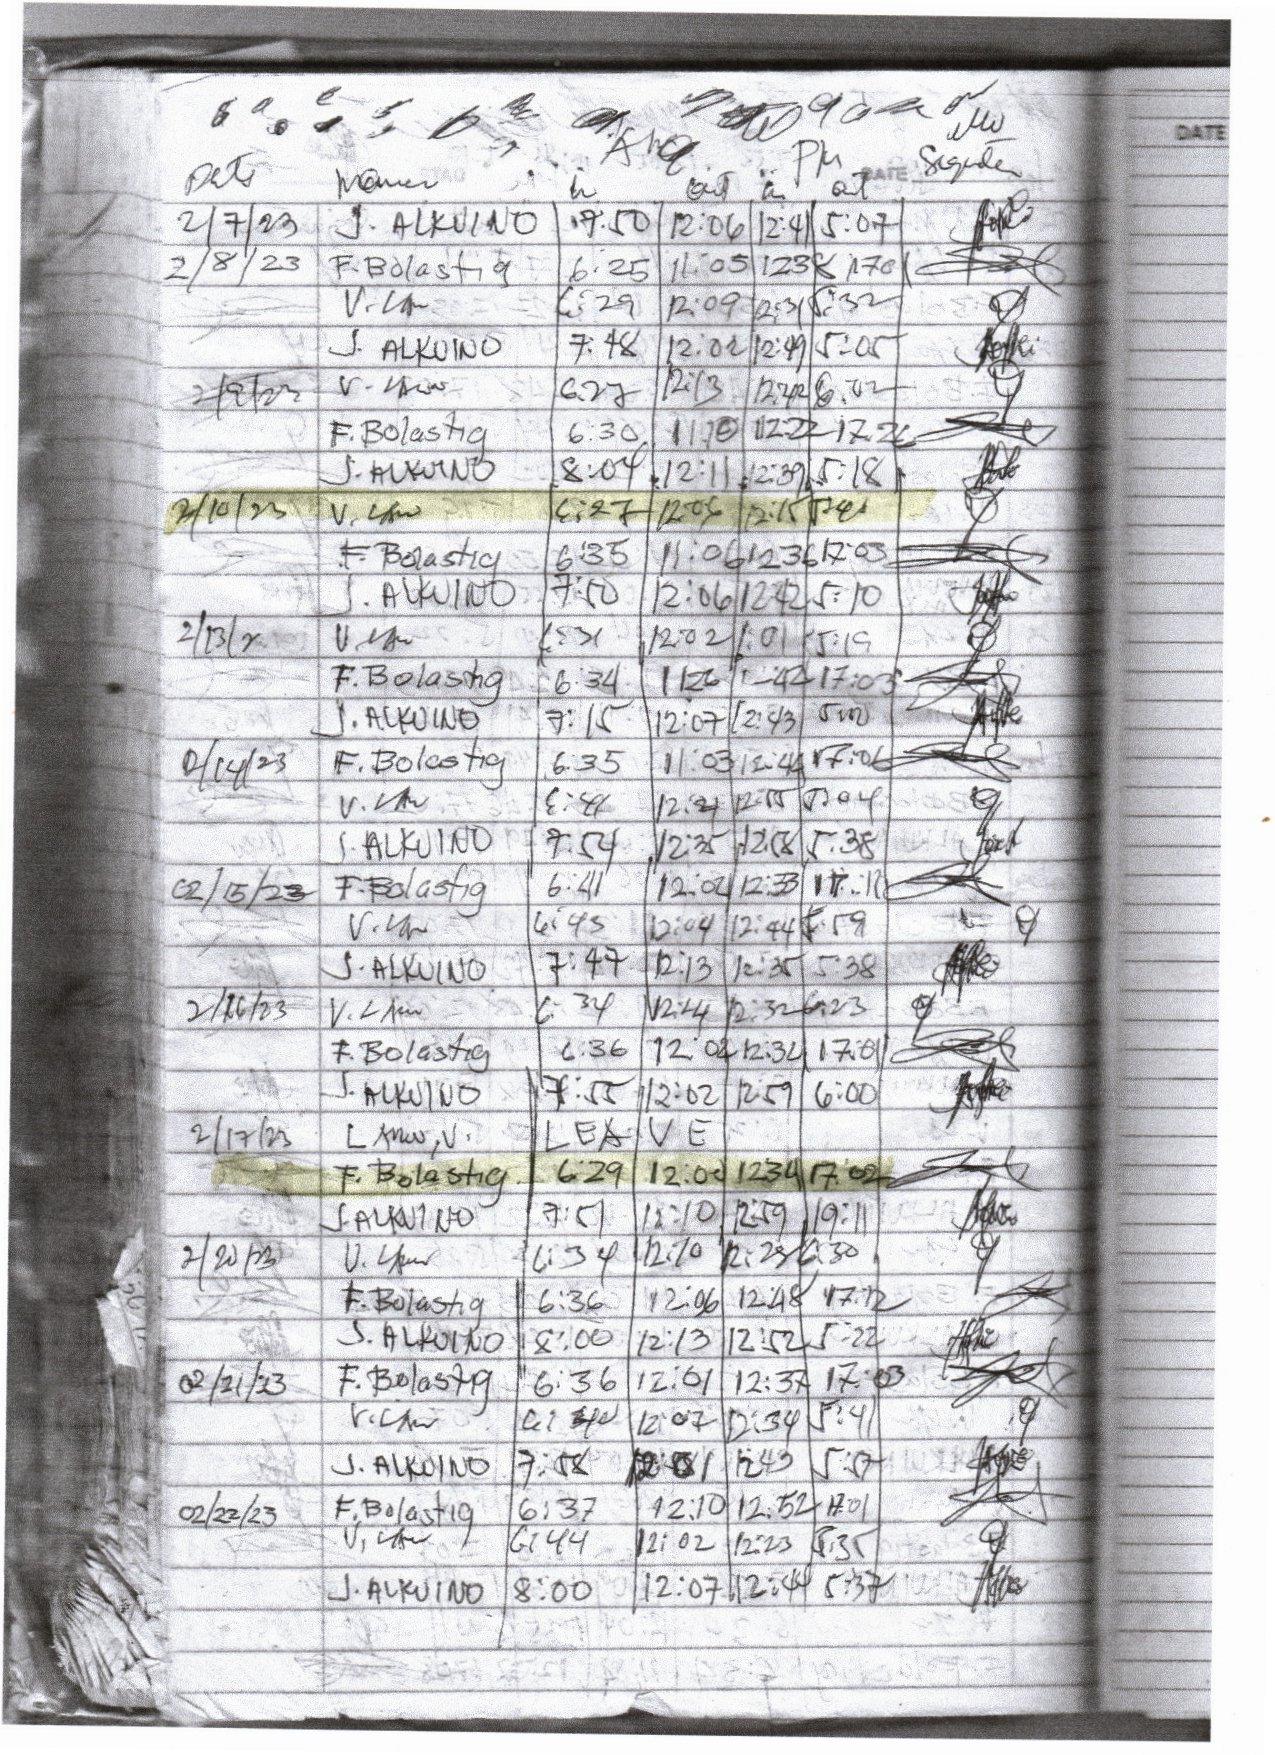 DATE
AM
Date Names in out in out
2/7/23 J. ALKUINO 7:50 12:06 12:41 5:07
2/8/23 F. Bolastig 6:25 11:05 1238
V. Law 6:29 12:09 12:31 5:32
J. ALKUINO 7:48 12:02 12:49 5:05
2/9/23 V. Law 6:27 12:13 12:42 6:02
F. Bolastig 6:30 11:10 12:22 17:26
J. ALKUINO 8:04 12:11 12:39 5:18
2/10/23 V. Law 6:27 12:06 12:15
F. Bolastig 6:35 11:06 12:36 17:03
J. ALKUINO 7:50 12:06 12:42 5:10
V. Law 6:31 12:02 1:01 5:19
F. Bolastig 6:34 1126 12:42 17:03
J. ALKUINO 7:15 12:07 12:43
2/14/23 F. Bolastig 6:35 11:03 17:06
V. Law 12:55 5:04
J. ALKUINO 7:54 12:35 12:58 5:38
02/15/23 F. Bolastig 6:41 12:02 12:33
V. Law 6:45 12:04 12:44 5:59
J. ALKUINO 7:47 12:13 12:35 5:38
2/16/23 V. Law 6:34 12:44 12:32 6:23
F. Bolastig 6:36 12:02 12:32 17:01
J. ALKUINO 7:55 12:02 1259 6:00
2/17/23 V. LEAVE
F. Bolastig 6:29 12:00 1234 17:02
J. ALKUINO 7:51 12:10 12:59 19:11
2/20/23 V. Law 6:34 12:10 12:23 6:30
F. Bolastig 6:36 12:06 12:48 17:12
J. ALKUINO 8:00 12:13 12:52 5:22
02/21/23 F. Bolastig 6:36 12:01 12:37 17:03
V. Law 12:07 12:34 5:41
J. ALKUINO 7:58 1243 5:57
02/22/23 F. Bolastig 6:37 12:10 12:52 17:01
V. Law 6:44 12:02 12:23 5:35
J. ALKUINO 8:00 12:07 12:44 5:37